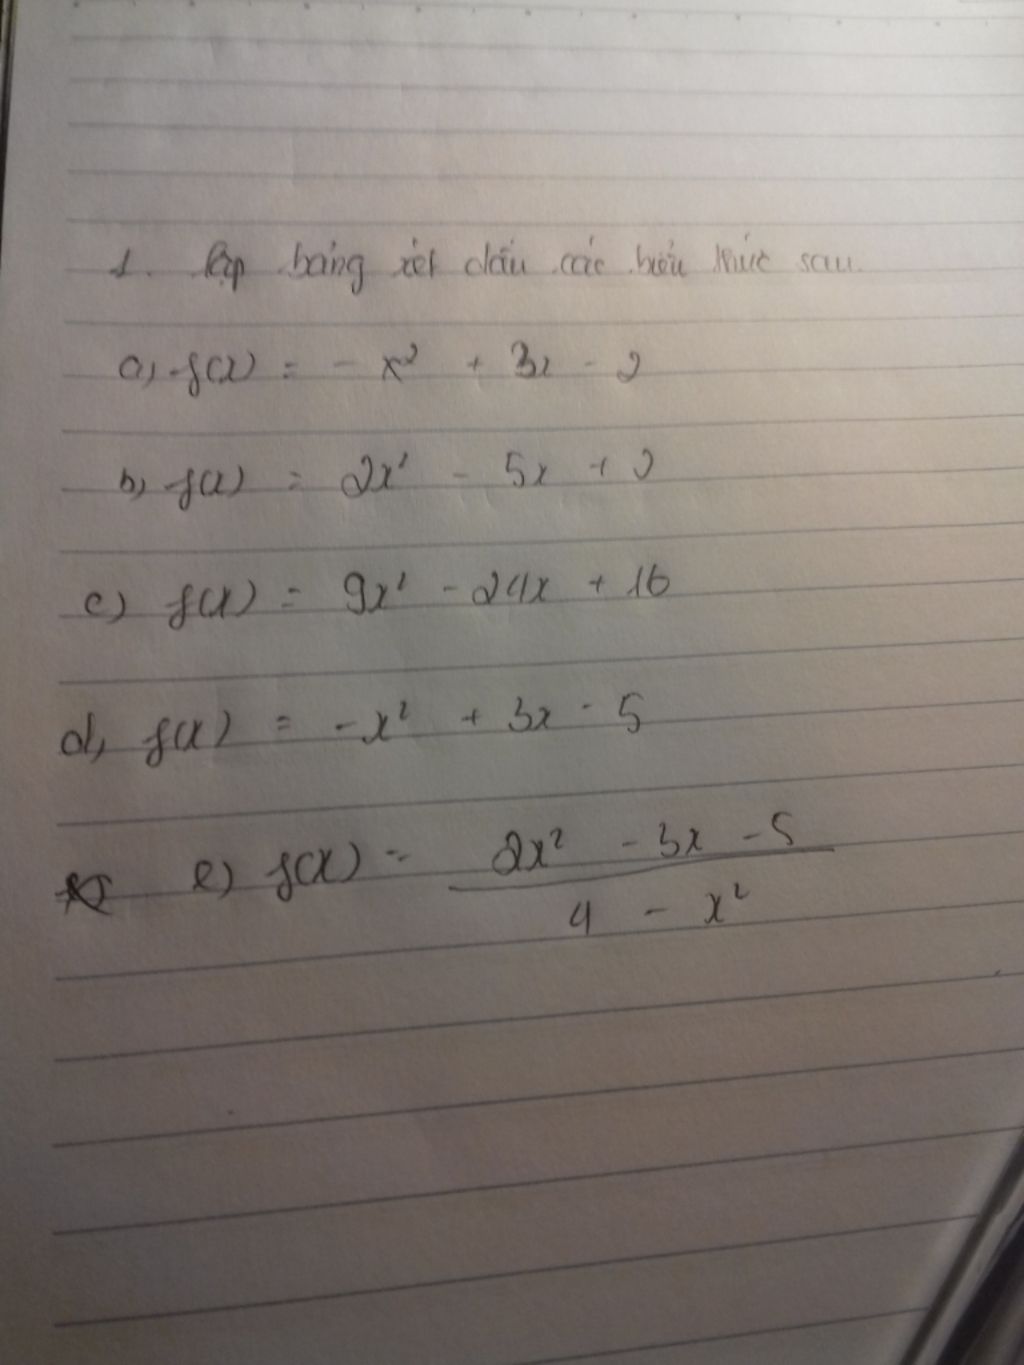 1. lập bảng xét dấu các biểu thức sau.
a, f(x) = - x² + 3x - 2
b, f(x) = 2x² - 5x + 2
c) f(x) = 9x² - 24x + 16
d, f(x) = -x² + 3x - 5
e) f(x) = 2x² - 3x - 5
4 - x²